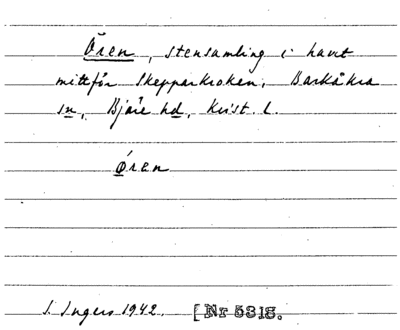 Ören, stensamling i havet
mittför Skepparkroken, Barkåkra
sn, Bjäre hd, Krist. l.
Øren
I. Ingers 1942. [Nr 5318.